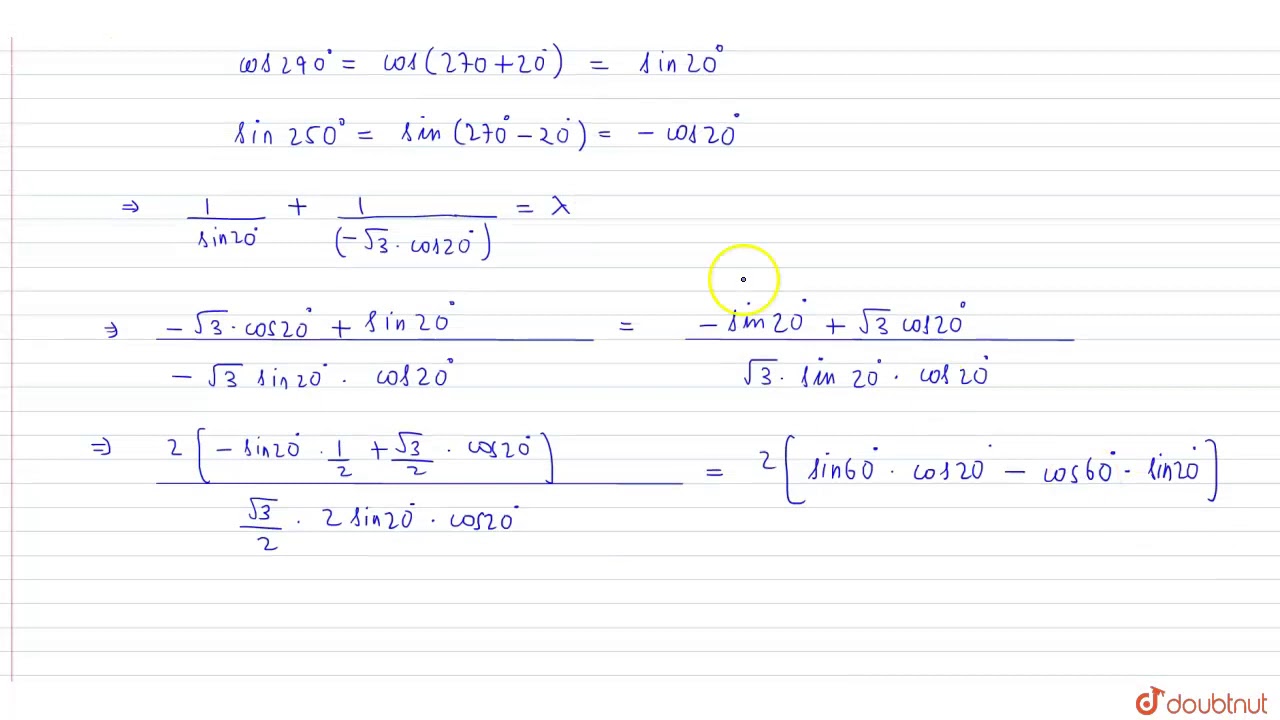 cos 290° = cos(270 + 20°) = sin 20°
sin 250° = sin (270° - 20°) = - cos 20°
⇒ 1/sin 20° + 1/(-√3 · cos 20°) = λ
⇒ (-√3 · cos 20° + sin 20°)/(-√3 sin 20° · cos 20°) = (- sin 20° + √3 cos 20°)/(√3 · sin 20° · cos 20°)
⇒ 2[- sin 20° · 1/2 + √3/2 · cos 20°]/(√3/2 · 2 sin 20° · cos 20°) = 2[sin 60° · cos 20° - cos 60° · sin 20°]
doubtnut